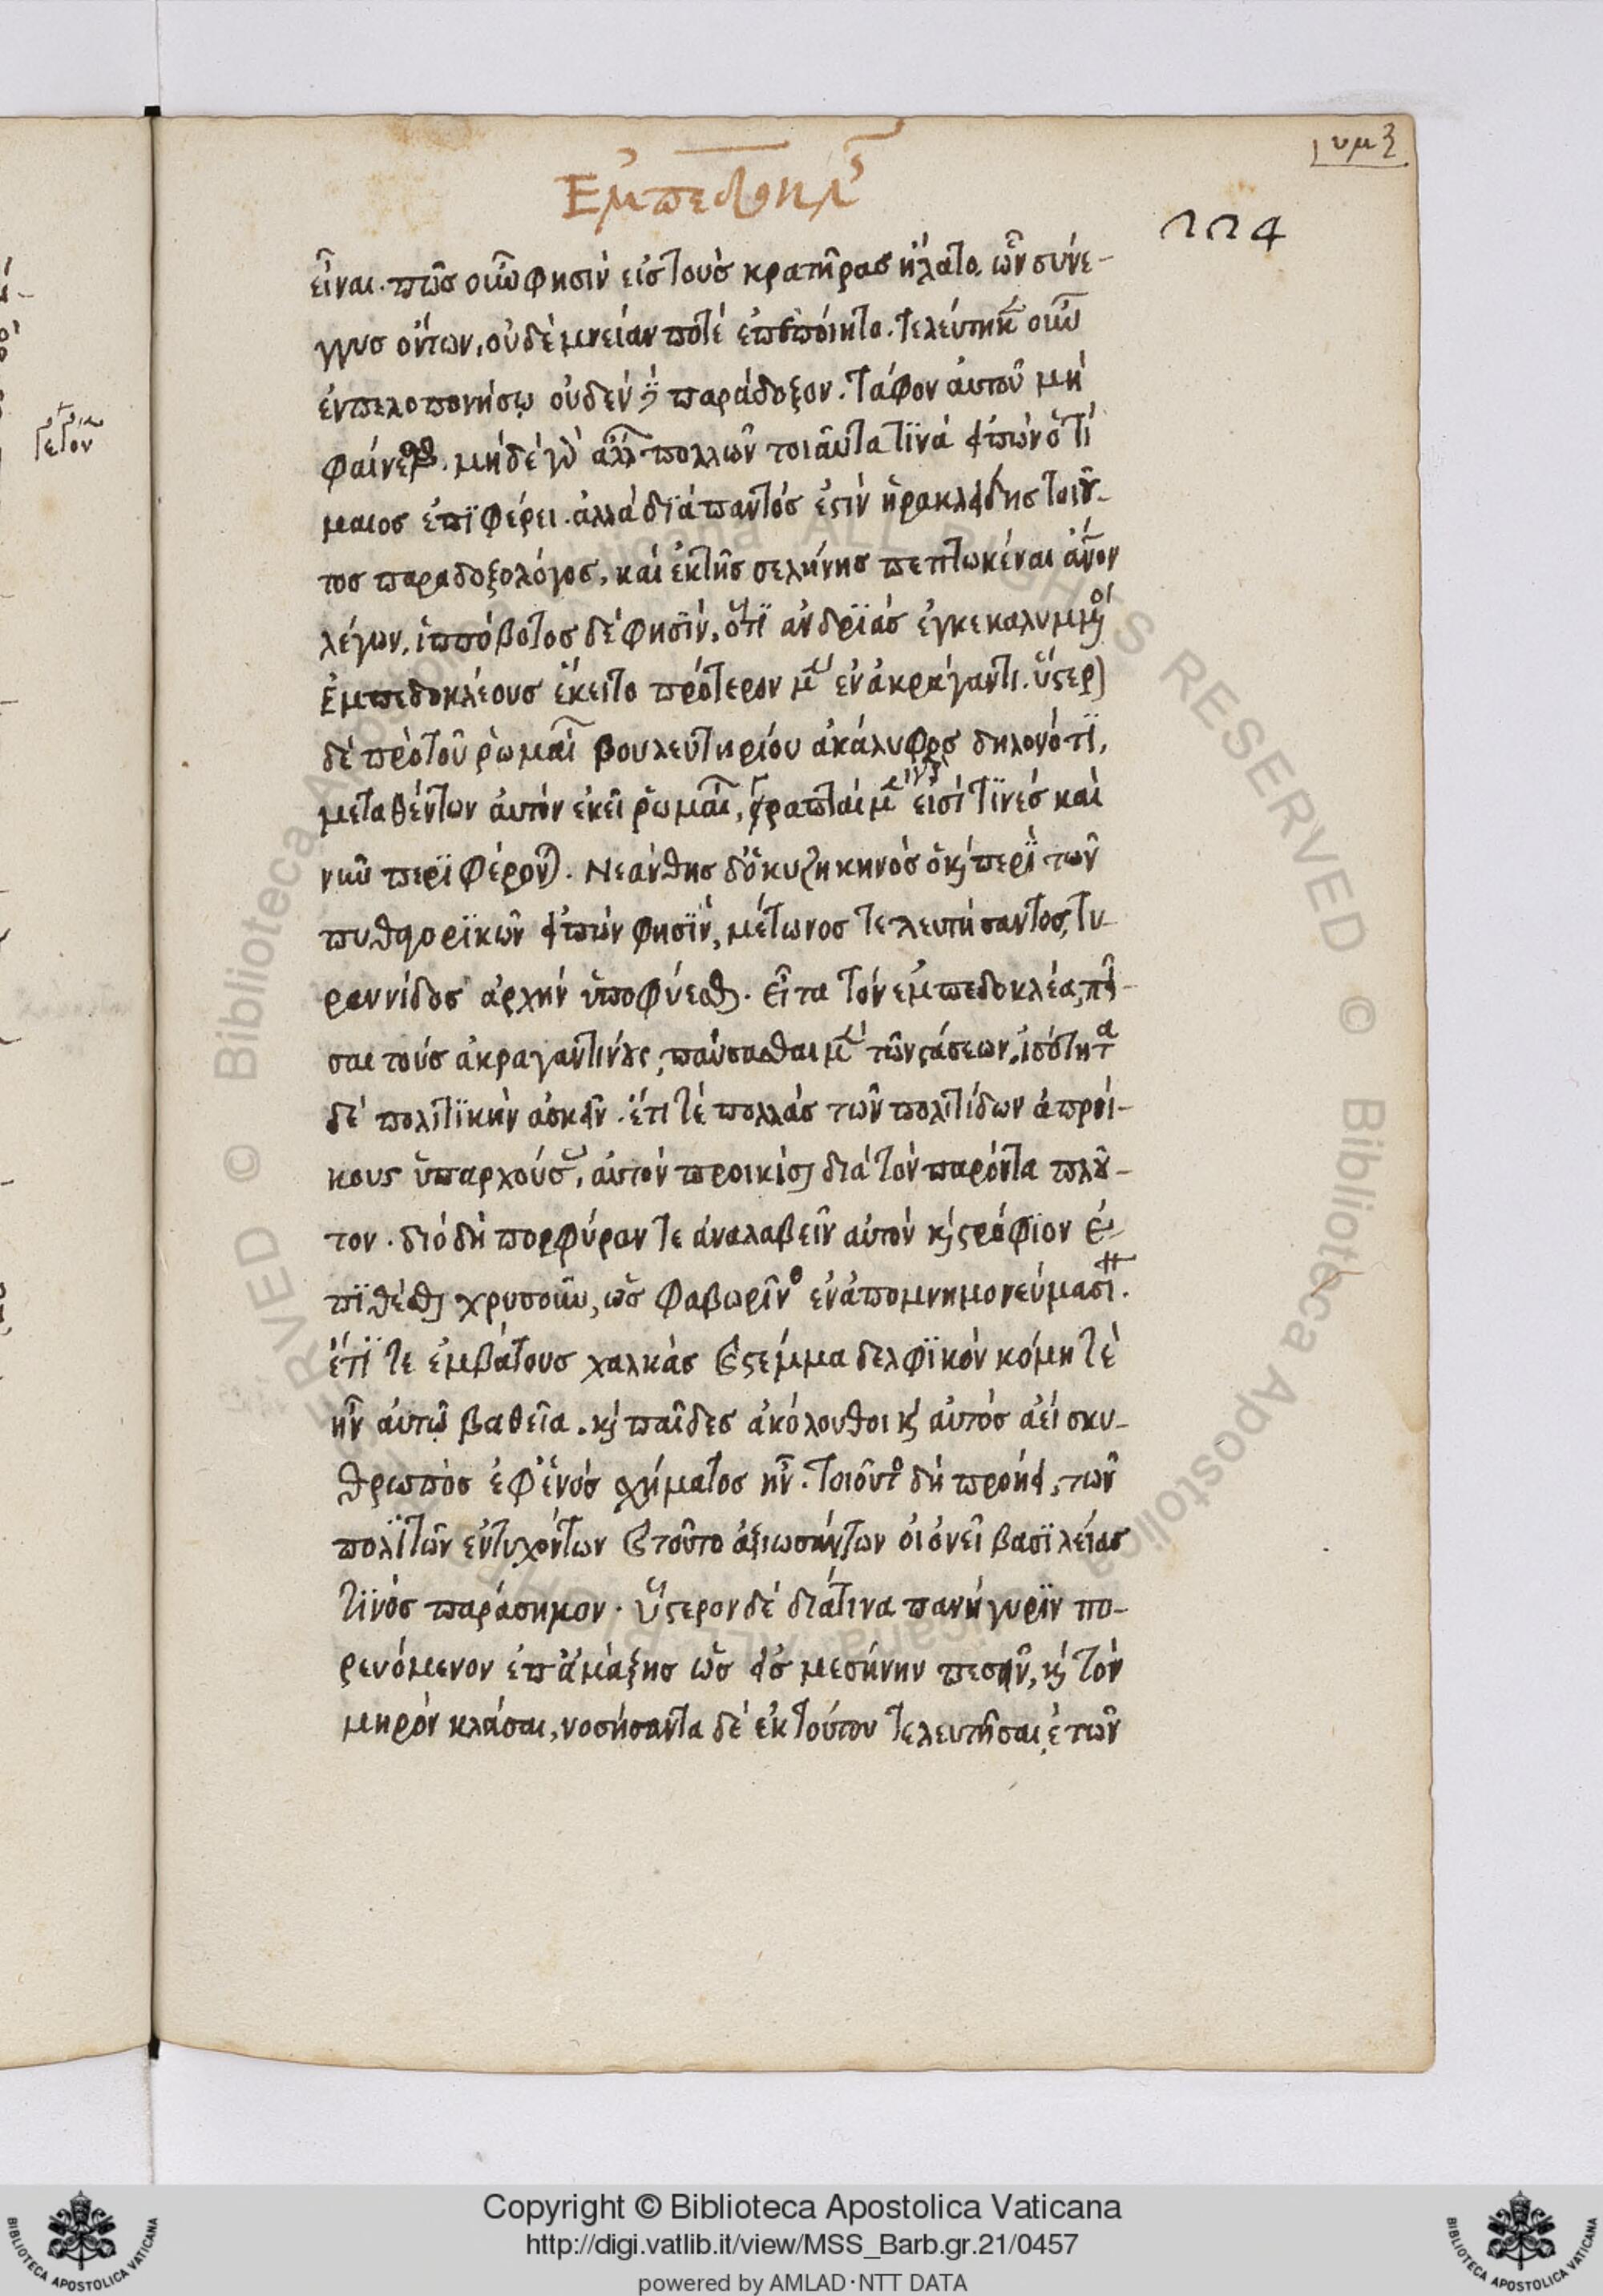 υμζ
Ἐμπεδοκλῆς
224
εἶναι. πῶς οὖν φησὶν εἰς τοὺς κρατῆρας ἥλατο, ὧν σύνε-
γγυς ὄντων, οὐδὲ μνείαν ποτὲ ἐπεποίητο. τελευτηκ οὖν
ἐν πελοποννήσῳ οὐδὲν δὲ παράδοξον. τάφον αὐτοῦ μὴ
φαίνεσθαι. μηδὲ γὰρ ἄλλων πολλῶν τοιαῦτα τινὰ εἰπὼν ὁ τί
μαιος ἐπιφέρει. ἀλλὰ διὰ παντός ἐστιν ἡρακλείδης τοιοῦ-
τος παραδοξολόγος, καὶ ἐκ τῆς σελήνης πεπτωκέναι ἄνον
λέγων, ἱππόβοτος δὲ φησὶν, ὅτι ἀνδριὰς ἐγκεκαλυμμένος
Ἐμπεδοκλέους ἔκειτο πρότερον μὲν ἐν ἀκράγαντι. ὕστερον
δὲ πρὸ τοῦ ῥωμαίων βουλευτηρίου ἀκάλυφος δηλονότι,
μεταθέντων αὐτὸν ἐκεῖ ῥωμαίων, γραπταὶ μὲν εἰσὶ τινὲς καὶ
νῦν περιφέρονται. Νεάνθης δ' ὁ κυζηκηνὸς ὁ καὶ περὶ τῶν
πυθαγορικῶν εἰπών φησὶν, μέτωνος τελευτήσαντος, τυ-
ραννίδος ἀρχὴν ὑποφύεσθαι. εἶτα τὸν ἐμπεδοκλέα, πεῖ-
σαι τοὺς ἀκραγαντίνους, παύσασθαι μὲν τῶν στάσεων, ἰσότητα
δὲ πολιτικὴν ἀσκεῖν. ἔτι τὲ πολλὰς τῶν πολιτίδων ἀπροί-
κους ὑπαρχούσας, αὐτὸν προικίσαι διὰ τὸν παρόντα πλοῦ-
τον. διὸ δὴ πορφύραν τε ἀναλαβεῖν αὐτὸν καὶ στρόφιον ἐ-
πιθέσθαι χρυσοῦν, ὡς Φαβωρῖνος ἐν ἀπομνημονεύμασι.
ἔτι τε ἐμβάτους χαλκᾶς καὶ στέμμα δελφικὸν κόμη τὲ
ἦν αὐτῷ βαθεῖα. καὶ παῖδες ἀκόλουθοι καὶ αὐτὸς ἀεὶ σκυ-
θρωπὸς ἐφ' ἑνὸς σχήματος ἦν. τοιοῦτος δὴ προήει, τῶν
πολιτῶν ἐντυχόντων καὶ τοῦτο ἀξιωσάντων οἱονεὶ βασιλείας
τινὸς παράσημον. ὕστερον δὲ διά τινα πανήγυριν πο-
ρευόμενον ἐπ' ἀμάξης ὡς εἰς μεσήνην πεσεῖν, καὶ τὸν
μηρὸν κλάσαι, νοσήσαντα δὲ ἐκ τούτου τελευτῆσαι, ἐτῶν
Copyright © Biblioteca Apostolica Vaticana
http://digi.vatlib.it/view/MSS_Barb.gr.21/0457
powered by AMLAD·NTT DATA